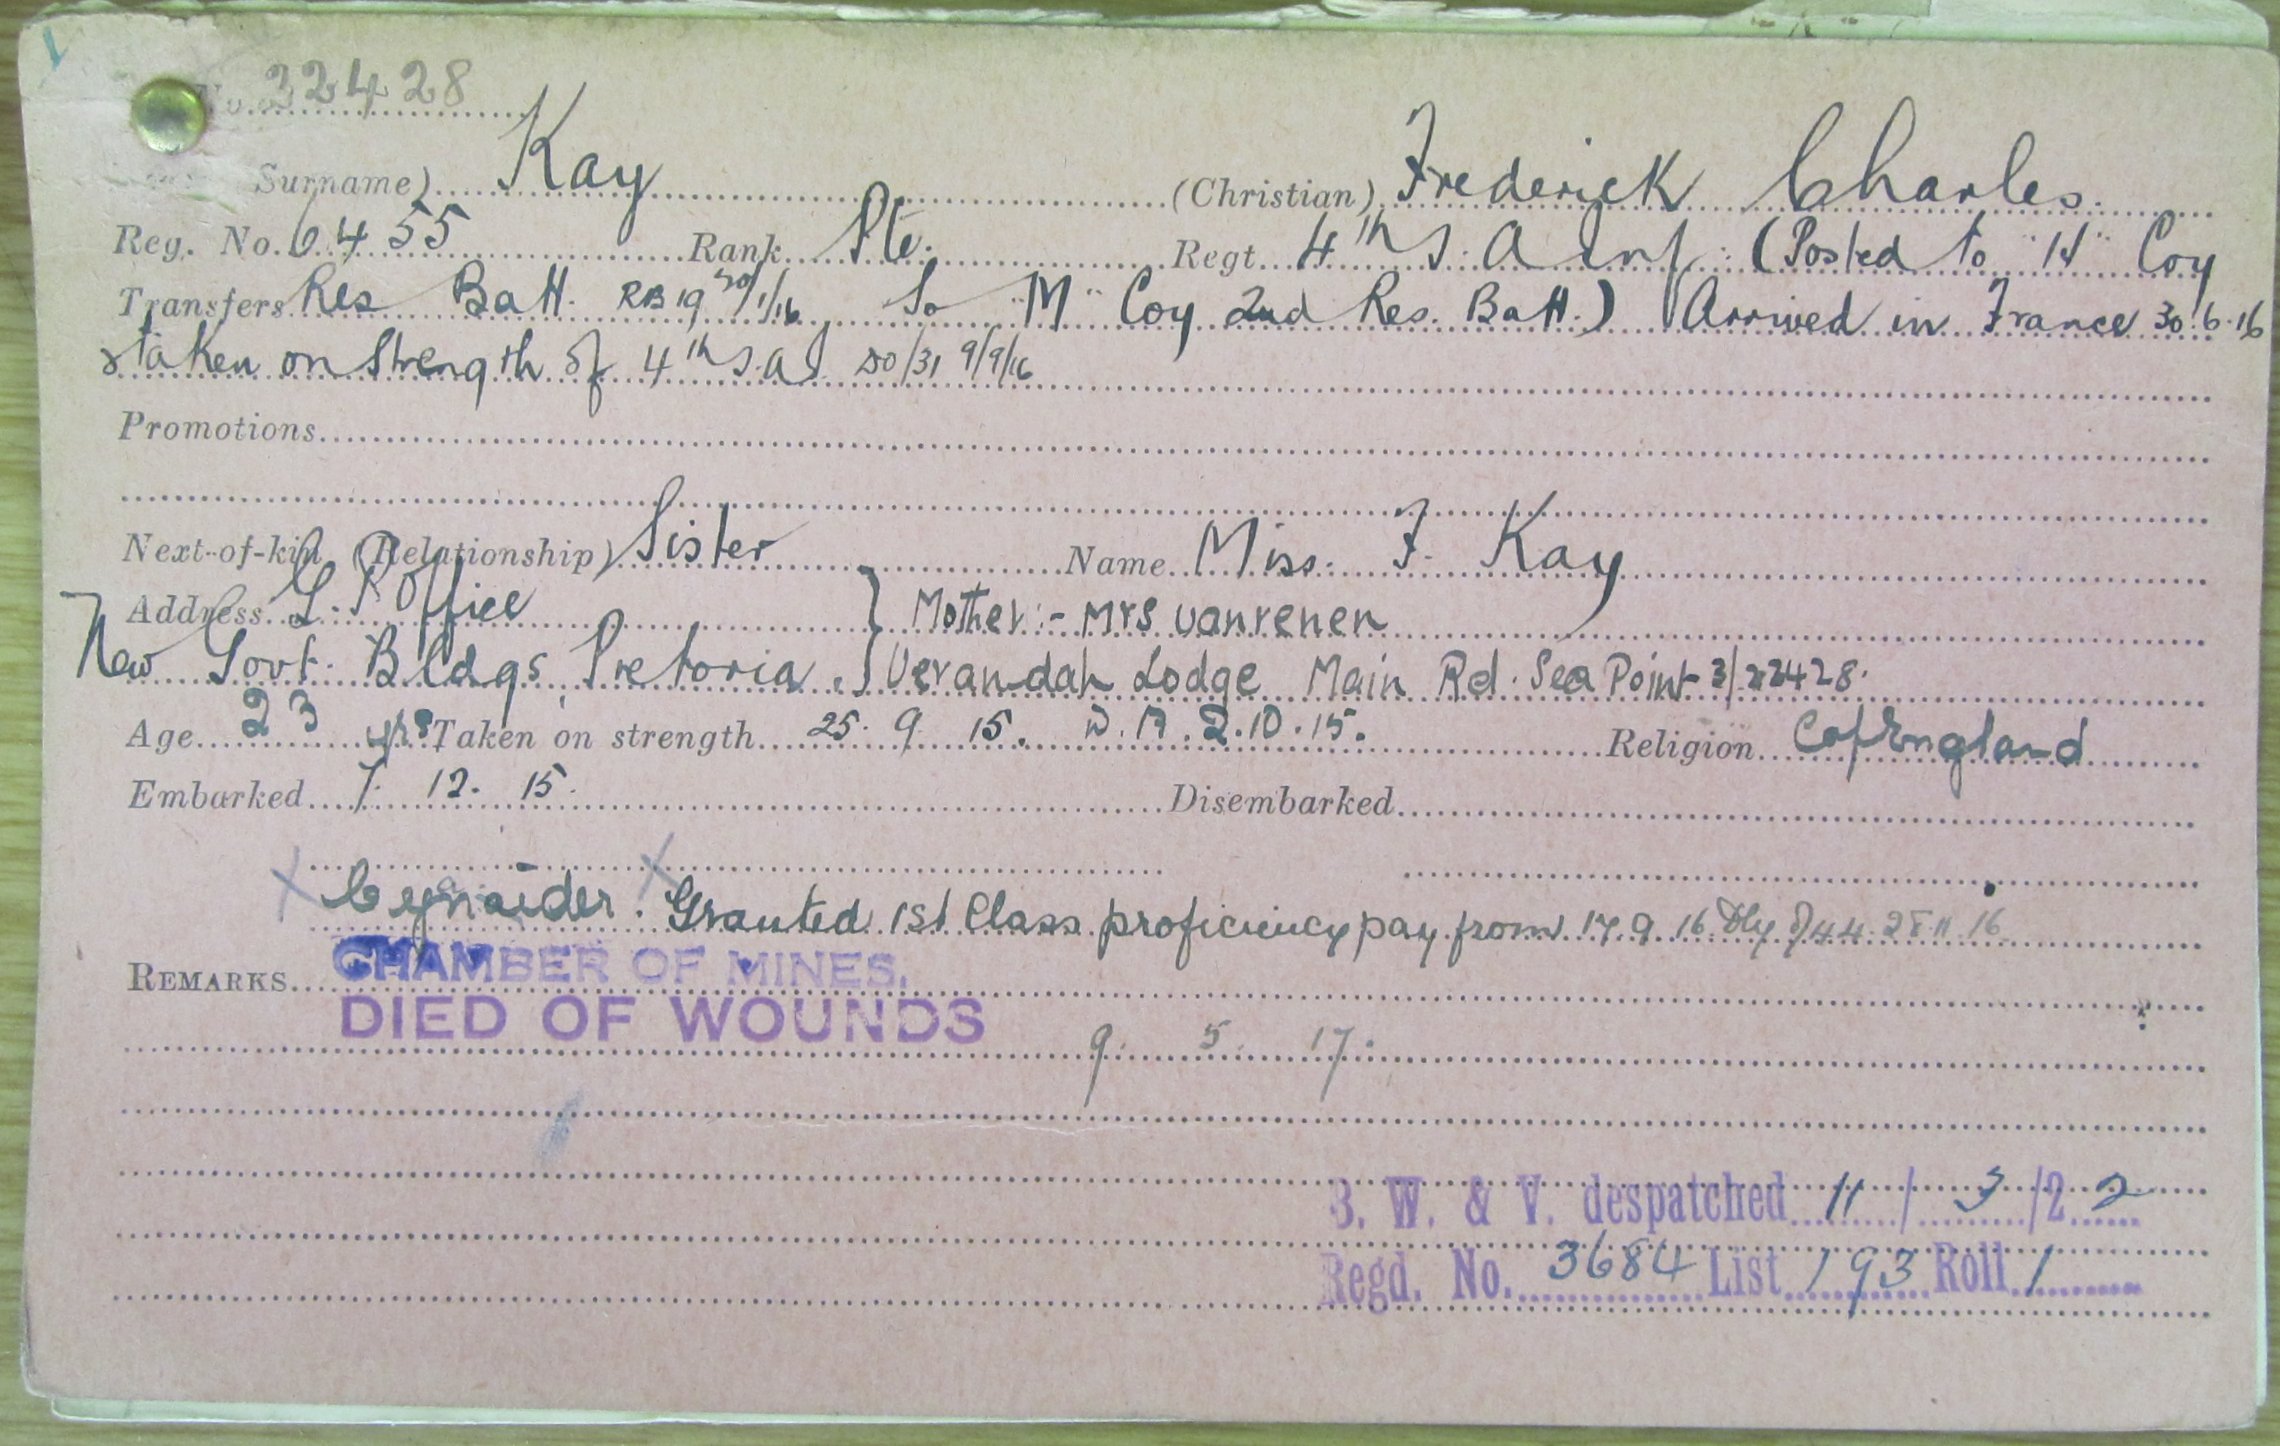 No. 32428
Surname) Kay (Christian) Frederick Charles.
Reg. No. 6455 Rank Pte. Regt. 4th S. A Inf: (Posted to "H" Coy
Transfers Res Batt. RB19 20/1/16 To "M" Coy 2nd Res. Batt.) Arrived in France 30.6.16
Taken on Strength of 4th S.A.I DO/31 9/9/16
Promotions
Next-of-kin (Relationship) Sister Name Miss. F. Kay
Address G. P Office } Mother:- Mrs vanrenen
New Govt. Bldgs, Pretoria. } Verandah Lodge Main Rd. Sea Point 3/22428.
Age 23 yrs Taken on strength 25. 9 15. D. A. 2.10.15. Religion C of England
Embarked 7. 12. 15. Disembarked
Granted 1st Class proficiency pay from 17.9.16
REMARKS CHAMBER OF MINES.
DIED OF WOUNDS 9. 5. 17.
B. W. & V. despatched 11/3/22
Regd. No. 3684 List 193 Roll 1